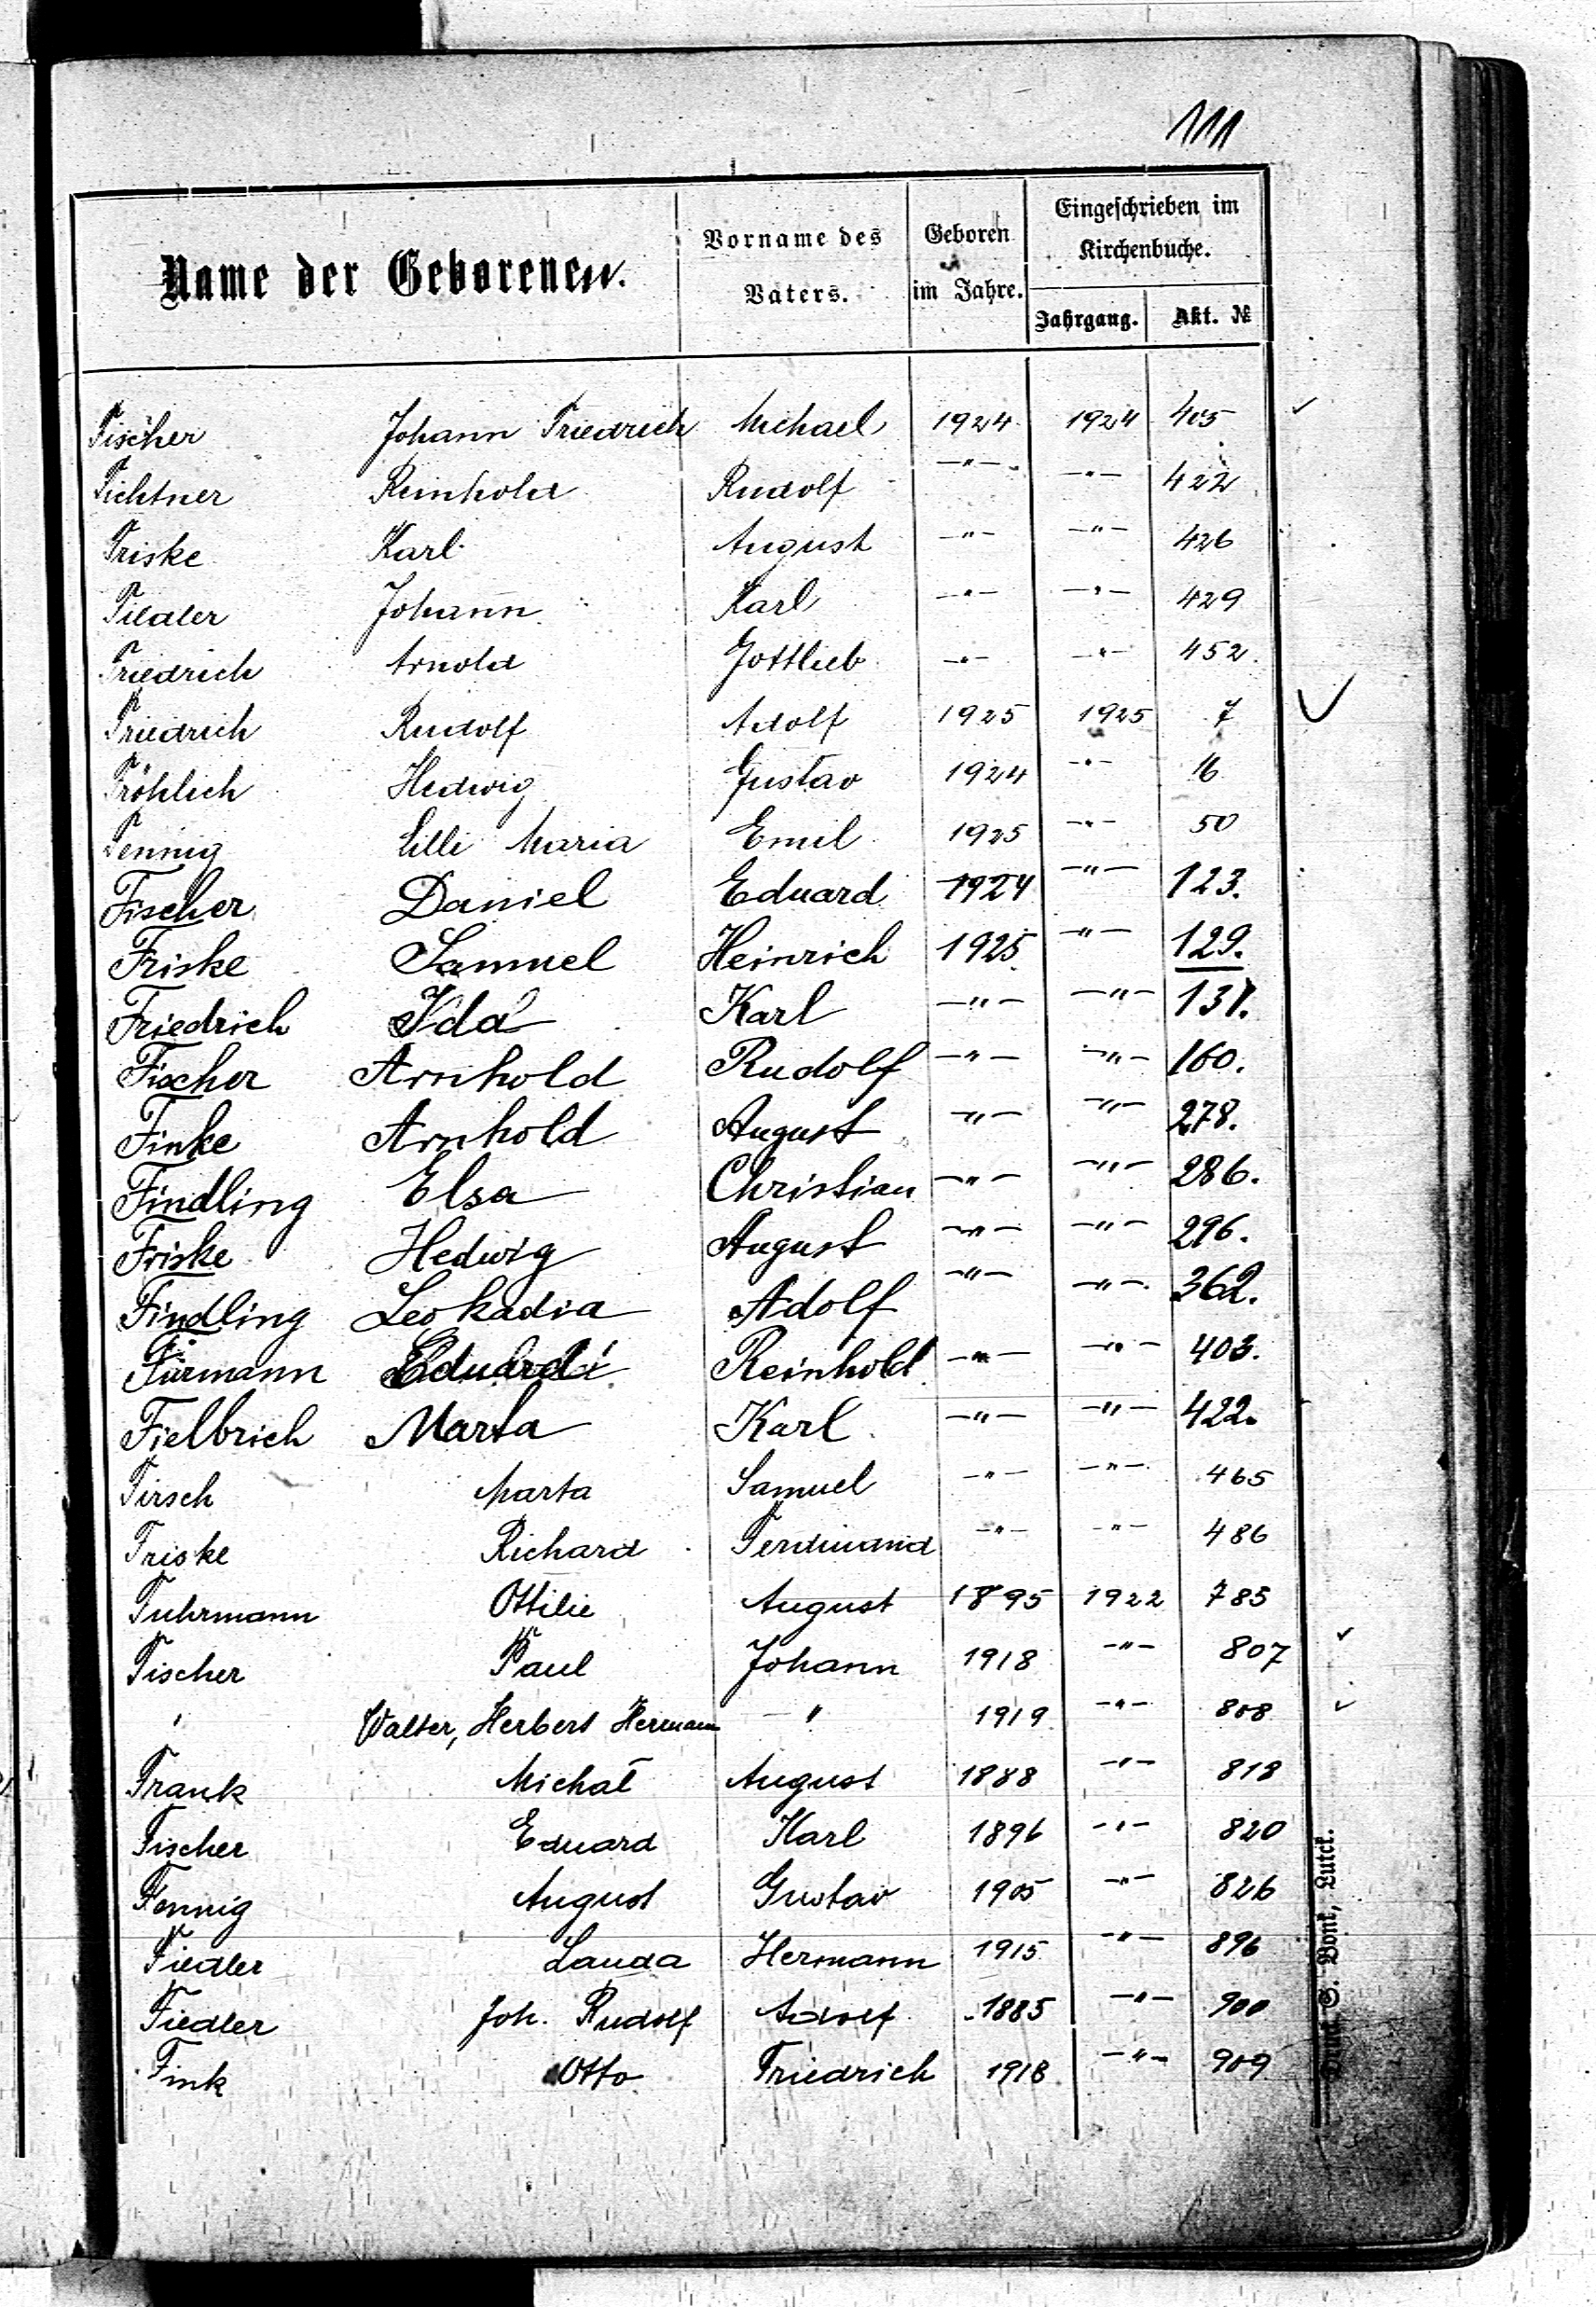 111
Name der Geborenen. Vorname des Vaters. Geboren im Jahre. Eingeschrieben im Kirchenbuche. Jahrgang. Akt. №
Fischer Johann Friedrich Michael 1924 1924 405 ✓
Fichtner Reinhold Rudolf -"- -"- 422
Friske Karl August -"- -"- 426
Fiedler Johann Karl -"- -"- 429
Friedrich Arnold Gottlieb -"- -"- 452.
Friedrich Rudolf Adolf 1925 1925 7 ✓
Fröhlich Hedwig Gustav 1924 -"- 16
Fennig Lilli Maria Emil 1925 -"- 50
Fischer Daniel Eduard 1924 -"- 123.
Friske Samuel Heinrich 1925 -"- 129.
Friedrich Ida Karl -"- -"-
Fischer Arnhold Rudolf -"- -"- 160.
Finke Arnhold August -"- -"- 278.
Findling Elsa Christian -"- -"- 286.
Friske Hedwig August -"- -"- 296.
Findling Leokadia Adolf -"- -"- 362.
Fürmann Eduard Reinhold -"- -"- 403.
Fielbrich Marta Karl -"- -"- 422.
Firsch Marta Samuel -"- -"- 465
Friske Richard Ferdinand -"- -"- 486
Fuhrmann Ottilie August 1895 1922 785
Fischer Paul Johann 1918 -"- 807 ✓
" Walter, Herbert Hermann " 1919 -"- 808 ✓
Frank Michał August 1888 -"- 818
Fischer Eduard Karl 1896 -"- 820
Fennig August Gustav 1905 -"- 826
Fiedler Lauda Hermann 1915 -"- 896
Fiedler Joh. Rudolf Adolf 1885 -"- 900
Fink Otto Friedrich 1918 -"- 909
Druck S. Bonk, Lutck.